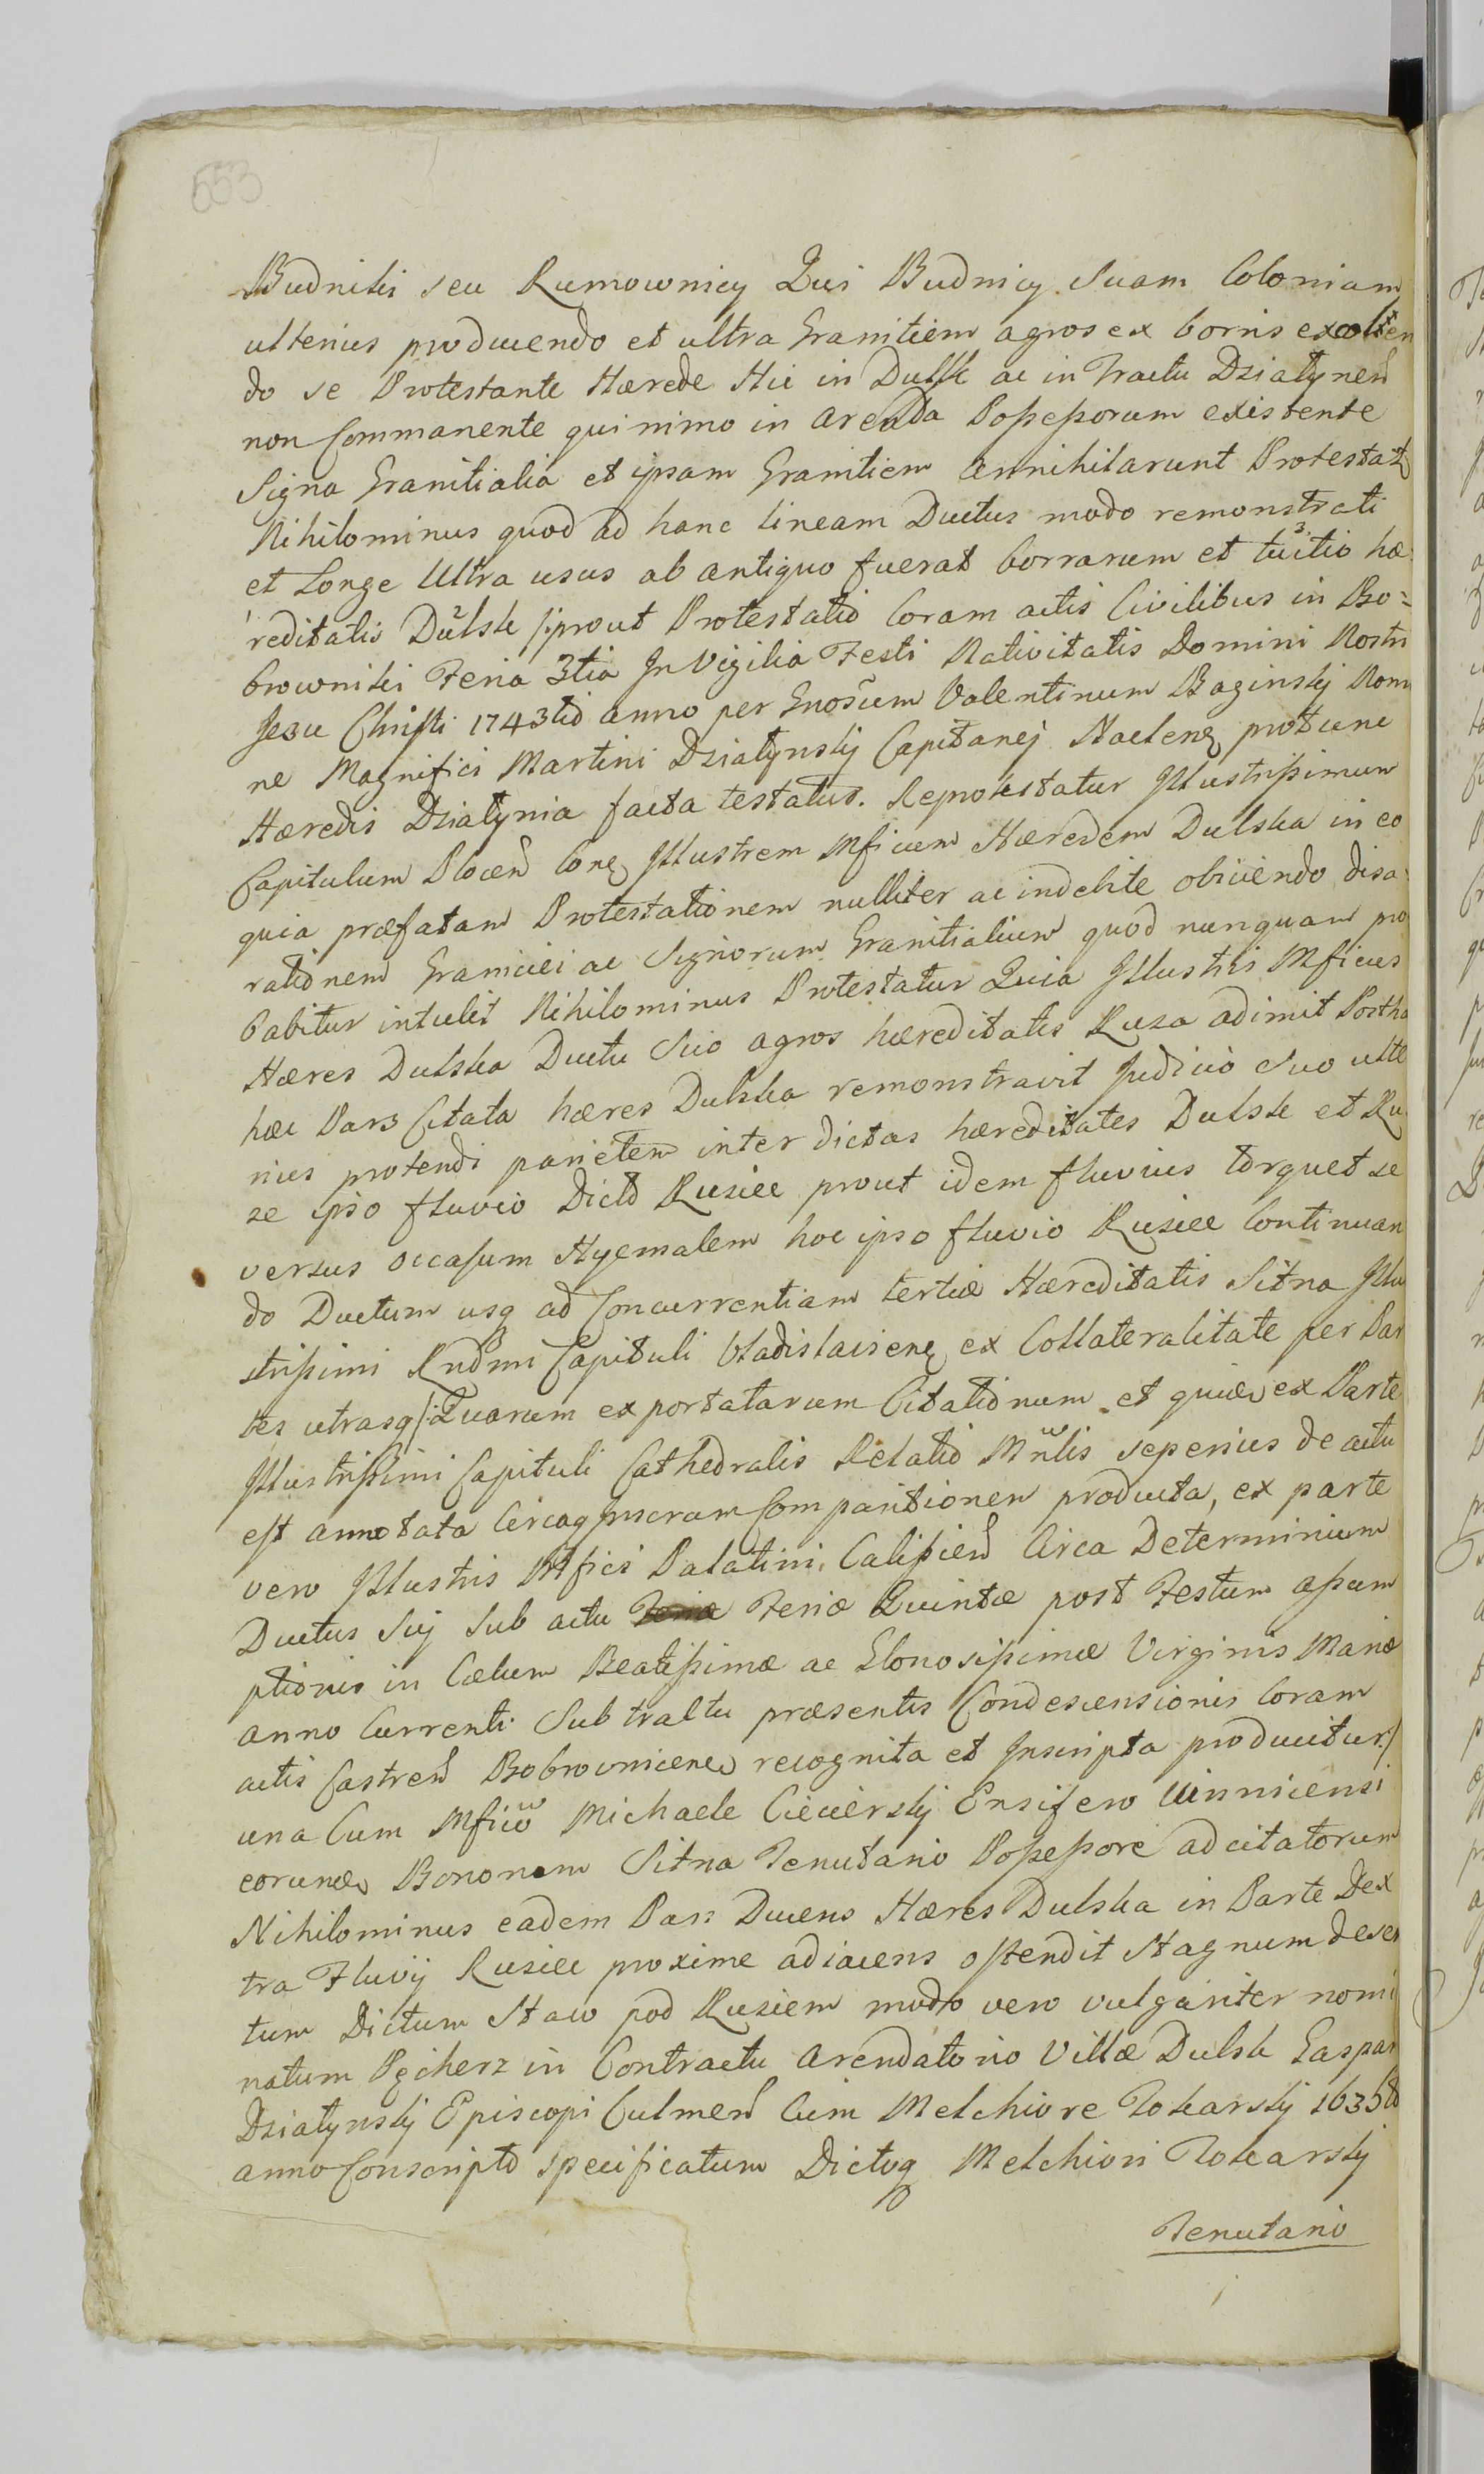 553
Budniki seu Rumownicy Qui Budnicy Suam Coloniam
ulterius producendo et ultra Granitiem agros ex borris excolen
do se Protestante Hærede Hic in Dulsk ac in Tractu Działynen
non Commanente quinimo in arenda Possessorum existente
Signa Granitialia et ipsam Granitiem annihilarunt Protestatq
Nihilominus quod ad hanc lineam Ductus modo remonstrati
et Longe Ultra usus ab antiquo fuerat borrarum et tuitio hæ
reditatis Dulsk /:prout Protestatio Coram actis Civilibus in Bo=
browniki Feria 3tia In Vigilia Festi Nativitatis Domini Nostri
Jesu Christi 1743tio anno per Gnosum Valentinum Baginsky Nomi
ne Magnifici Martini Dziatynsky Capitanej Naclenq protunc
Hæredis Dziatynia facta testatur. Reprotestatur Illustrissimum
Capitulum Plocen Conq Illustrem Mficum Hæredem Dulska in eo
quia præfatam Protestationem nulliter ac indebite obiciendo disa
rationem Graniciei ac Signorum Granitialium quod nunquam pro
babitur intulit Nihilominus Protestatur Quia Illustris Mficus
Hæres Dulska Ductu Suo agros hæreditatis Ruza adimit Postha
hæc Pars Citata hæres Dulska remonstravit Judicio Suo ulte
rius protendi parietem inter dictas hæreditates Dulsk et Ru
ze ipso fluvio Dicto Ruziec prout idem fluvius torquet se
versus occasum Hyemalem hoc ipso fluvio Ruziec Continuan
do Ductum usq ad Concurrentiam tertiæ Hæreditatis Sitna Illu
strissimi Rndmi Capituli Vladislaisenq ex Collateralitate per Par
tes utrasq /:Quarum exportatarum Citationum et quidem ex Parte
Illustrissimi Capituli Cathedralis Relatio Mnlis sepenius de actu
est annotata Circaq Inscram Comparitionem producta, ex parte
vero Illustris Mfici Palatini Calissien Circa Determinium
Ductus Suj Sub actu Feriæ Quintæ post Festum assum
ptionis in Cælum Beatissimæ ac Gloriosissimæ Virginis Mariæ
anno Currenti Sub tractu præsentis Condescensionis Coram
actis Castren Bobrovnicen recognita et Inscripta producitur:/
una Cum Mfico Michaele Ciecierskj Ensifero Winnicensi
eorundem Bonorum Sitna Tenutario Possessore adcitatorum
Nihilominus eadem Pars Ducens Hæres Dulska in Parte Dex
tra Fluvij Ruziec proxime adiacens ostendit Stagnum deser
tum Dictum Staw pod Ruziem modo vero vulgariter nomi
natum Pęcherz in Contractu arendatorio Villæ Dulsk Gaspar
Dziatynskj Episcopi Culmen Cum Melchiore Tokarskj 1635to
anno Conscripto specificatum Dictoq Melchiori Tokarskj
Tenutario